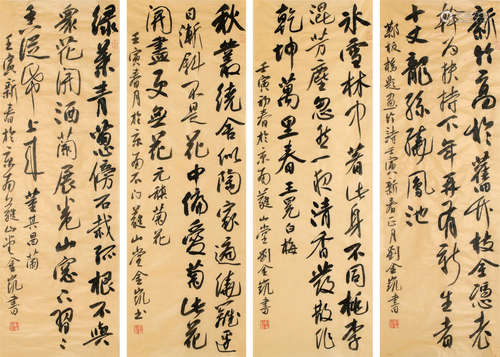 新竹高於舊竹枝全憑老
幹為扶持下年再有新生者
十丈龍孫繞鳳池
鄭板橋題畫竹詩壬寅新春正月劉金凱書
冰雪林中著此身不同桃李
混芳塵忽然一夜清香發散作
乾坤萬里春王冕白梅
壬寅初春於京南山堂劉金凱書
秋叢繞舍似陶家遍繞籬邊
日漸斜不是花中偏愛菊此花
開盡更無花元稹菊花
壬寅春月於京南石門山堂金凱書
綠葉青蔥傍石栽孤根不與
眾花開酒闌展卷山窗下習習
香從紙上來董其昌蘭
壬寅新春於京南山堂金凱書